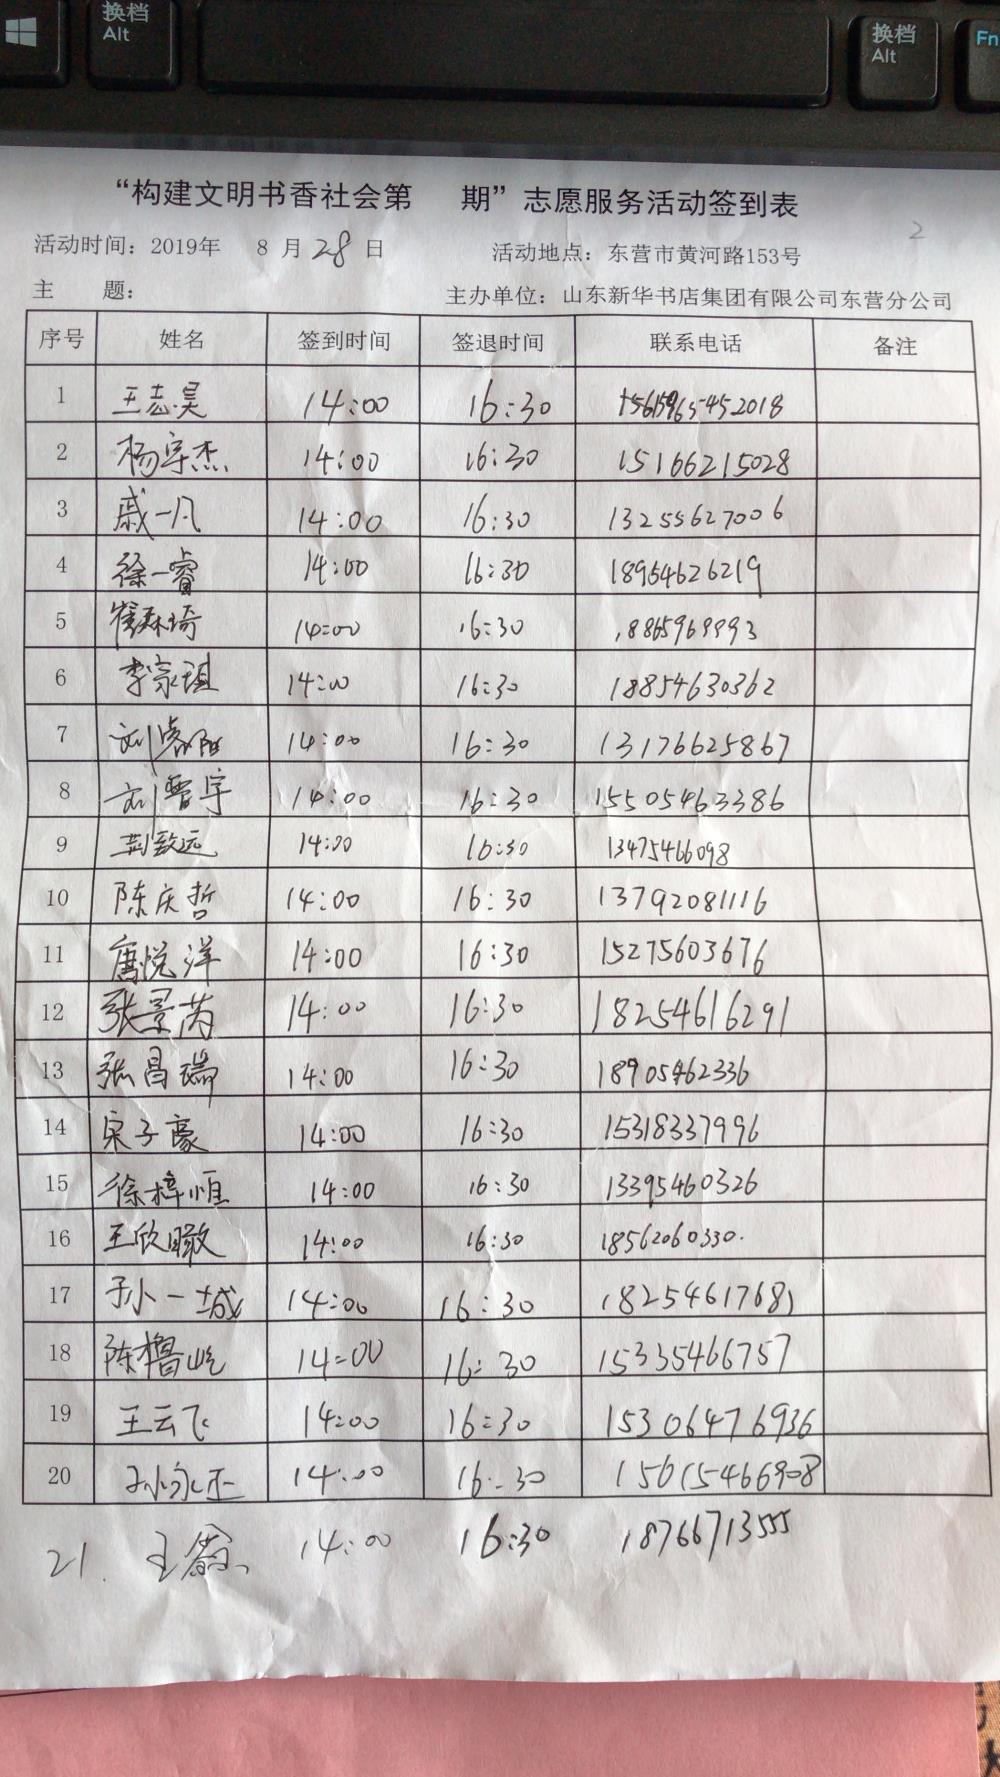 换档
Alt
换档
Alt
Fn
“构建文明书香社会第 期”志愿服务活动签到表
2
活动时间：2019年 8 月 28 日 活动地点：东营市黄河路153号
主 题： 主办单位：山东新华书店集团有限公司东营分公司
序号 姓名 签到时间 签退时间 联系电话 备注
1 王志昊 14:00 16:30
2 杨宇杰 14:00 16:30 15166215028
3 戚一凡 14:00 16:30 13255627006
4 徐一睿 14:00 16:30 18954626219
5 14:00 16:30
6 李家琪 14:00 16:30 18854630362
7 14:00 16:30 13176625867
8 刘睿宇 14:00 16:30 15505463386
9 荆致远 14:00 16:30 13475466098
10 陈庆哲 14:00 16:30 13792081116
11 唐悦洋 14:00 16:30 15275603676
12 张景芮 14:00 16:30 18254616291
13 张昌瑞 14:00 16:30 18905462336
14 宋子豪 14:00 16:30 15318337996
15 徐梓恒 14:00 16:30 13395460326
16 王欣暾 14:00 16:30 18562060330
17 孙一城 14:00 16:30 18254617681
18 陈櫓屹 14:00 16:30 15335466757
19 王云飞 14:00 16:30 15306476936
20 孙永正 14:00 16:30
21. 14:00 16:30 18766713555